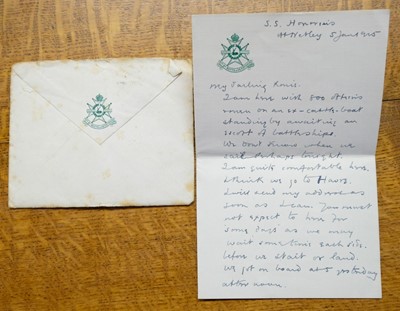 S.S. Honorius
5 Jan 1915
My Darling
I am here with 800 Africa
men on an ex-cattle-boat
standing by awaiting an
escort of battleships.
We don't know when we
sail perhaps tonight.
I am quite comfortable here.
I think we go to Havre.
I will send my address as
soon as I can. You must
not expect to hear for
some days as we may
wait sometime each side
before we start or land.
We got on board at 5 yesterday
afternoon.